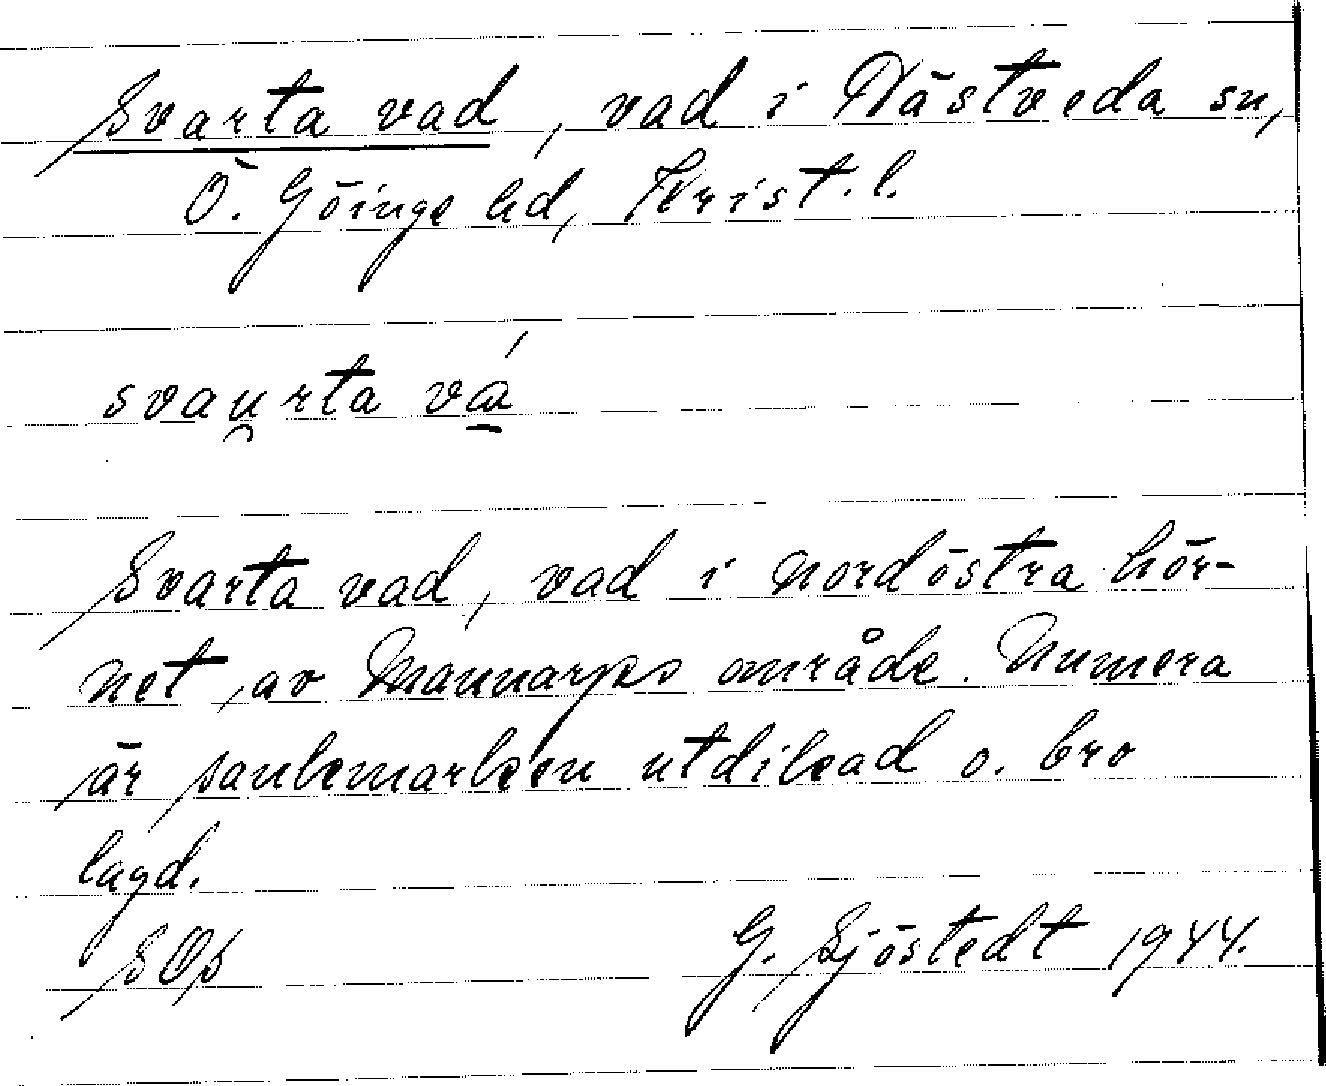 Svarta vad, vad i Nästveda sn,
Ö. Göinge hd, Krist. l.
svau̯rta vá̱
Svarta vad, vad i nordöstra hör-
net av Mannarps område. Numera
är sankmarken utdikad o. bro
lagd.
SOs
G. Sjöstedt 1944.